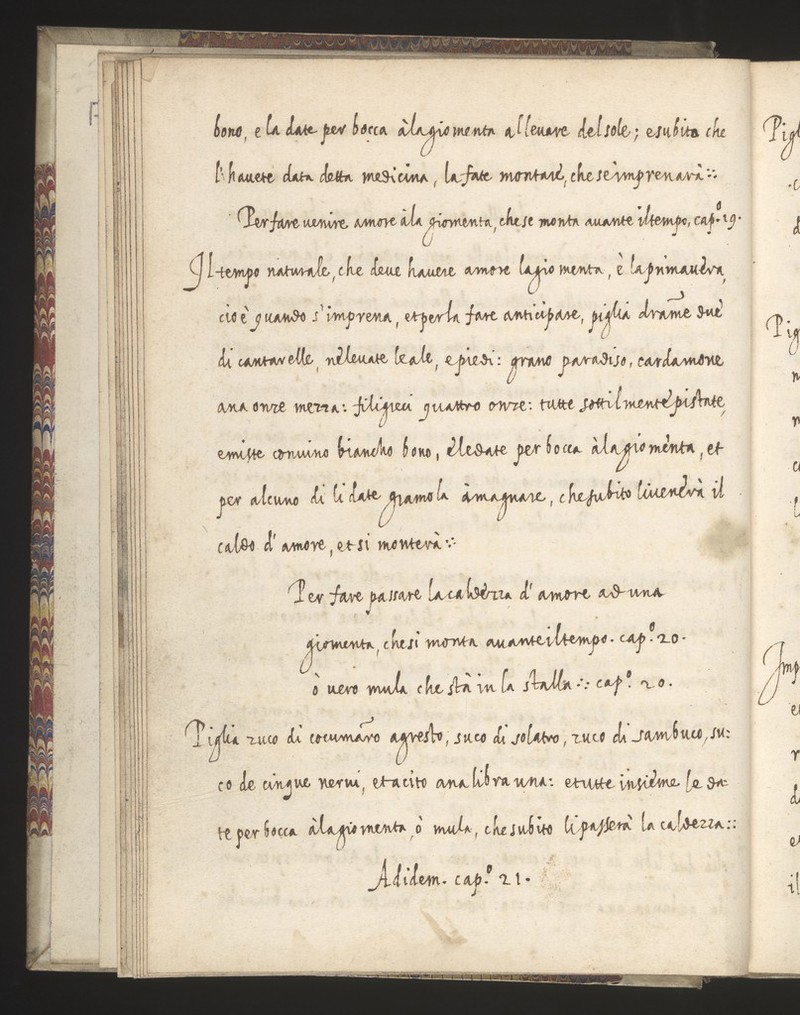 bono, e la date per bocca à la giomenta al leuare del sole; e subito che
l'hauete data detta medicina, la fate montare, che se imprenarà
Per fare uenire amore à la giomenta, che se monta auante il tempo, cap.º 19.
Il tempo naturale, che deue hauere amore la giomenta, è la primauera,
cio è quando s'imprena, et per la fare anticipare, piglia drame due
di cantarelle, ne leuate le ale, e piedi: grano paradiso, cardamone
ana onze mezza: filigreci quattro onze: tutte sottilmente pistate,
e miste con uino biancho bono, e le date per bocca à la giomenta, et
per alcuno dì li date gramola à magnare, che subito li uenerà il
caldo d'amore, et si monterà
Per fare passare la caldezza d'amore ad una
giomenta, che si monta auante il tempo. cap.º 20.
ò uero mula che stà in la stalla cap.º 20.
Piglia zuco di cocumaro agresto, suco di solatro, zuco di sambuco, su:
co de cinque nerui, et acito ana libra una: et tutte insieme le da-
te per bocca à la giomenta, ò mula, che subito li passerà la caldezza
Ad idem. cap.º 21.
Pigl
Pig
Imp